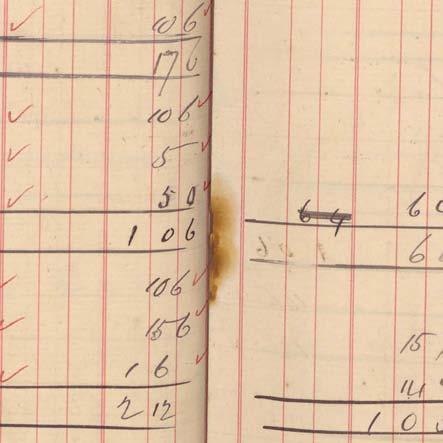 106
176
106
5
50
106
106
156
16
212
64 60
6
15
1 0